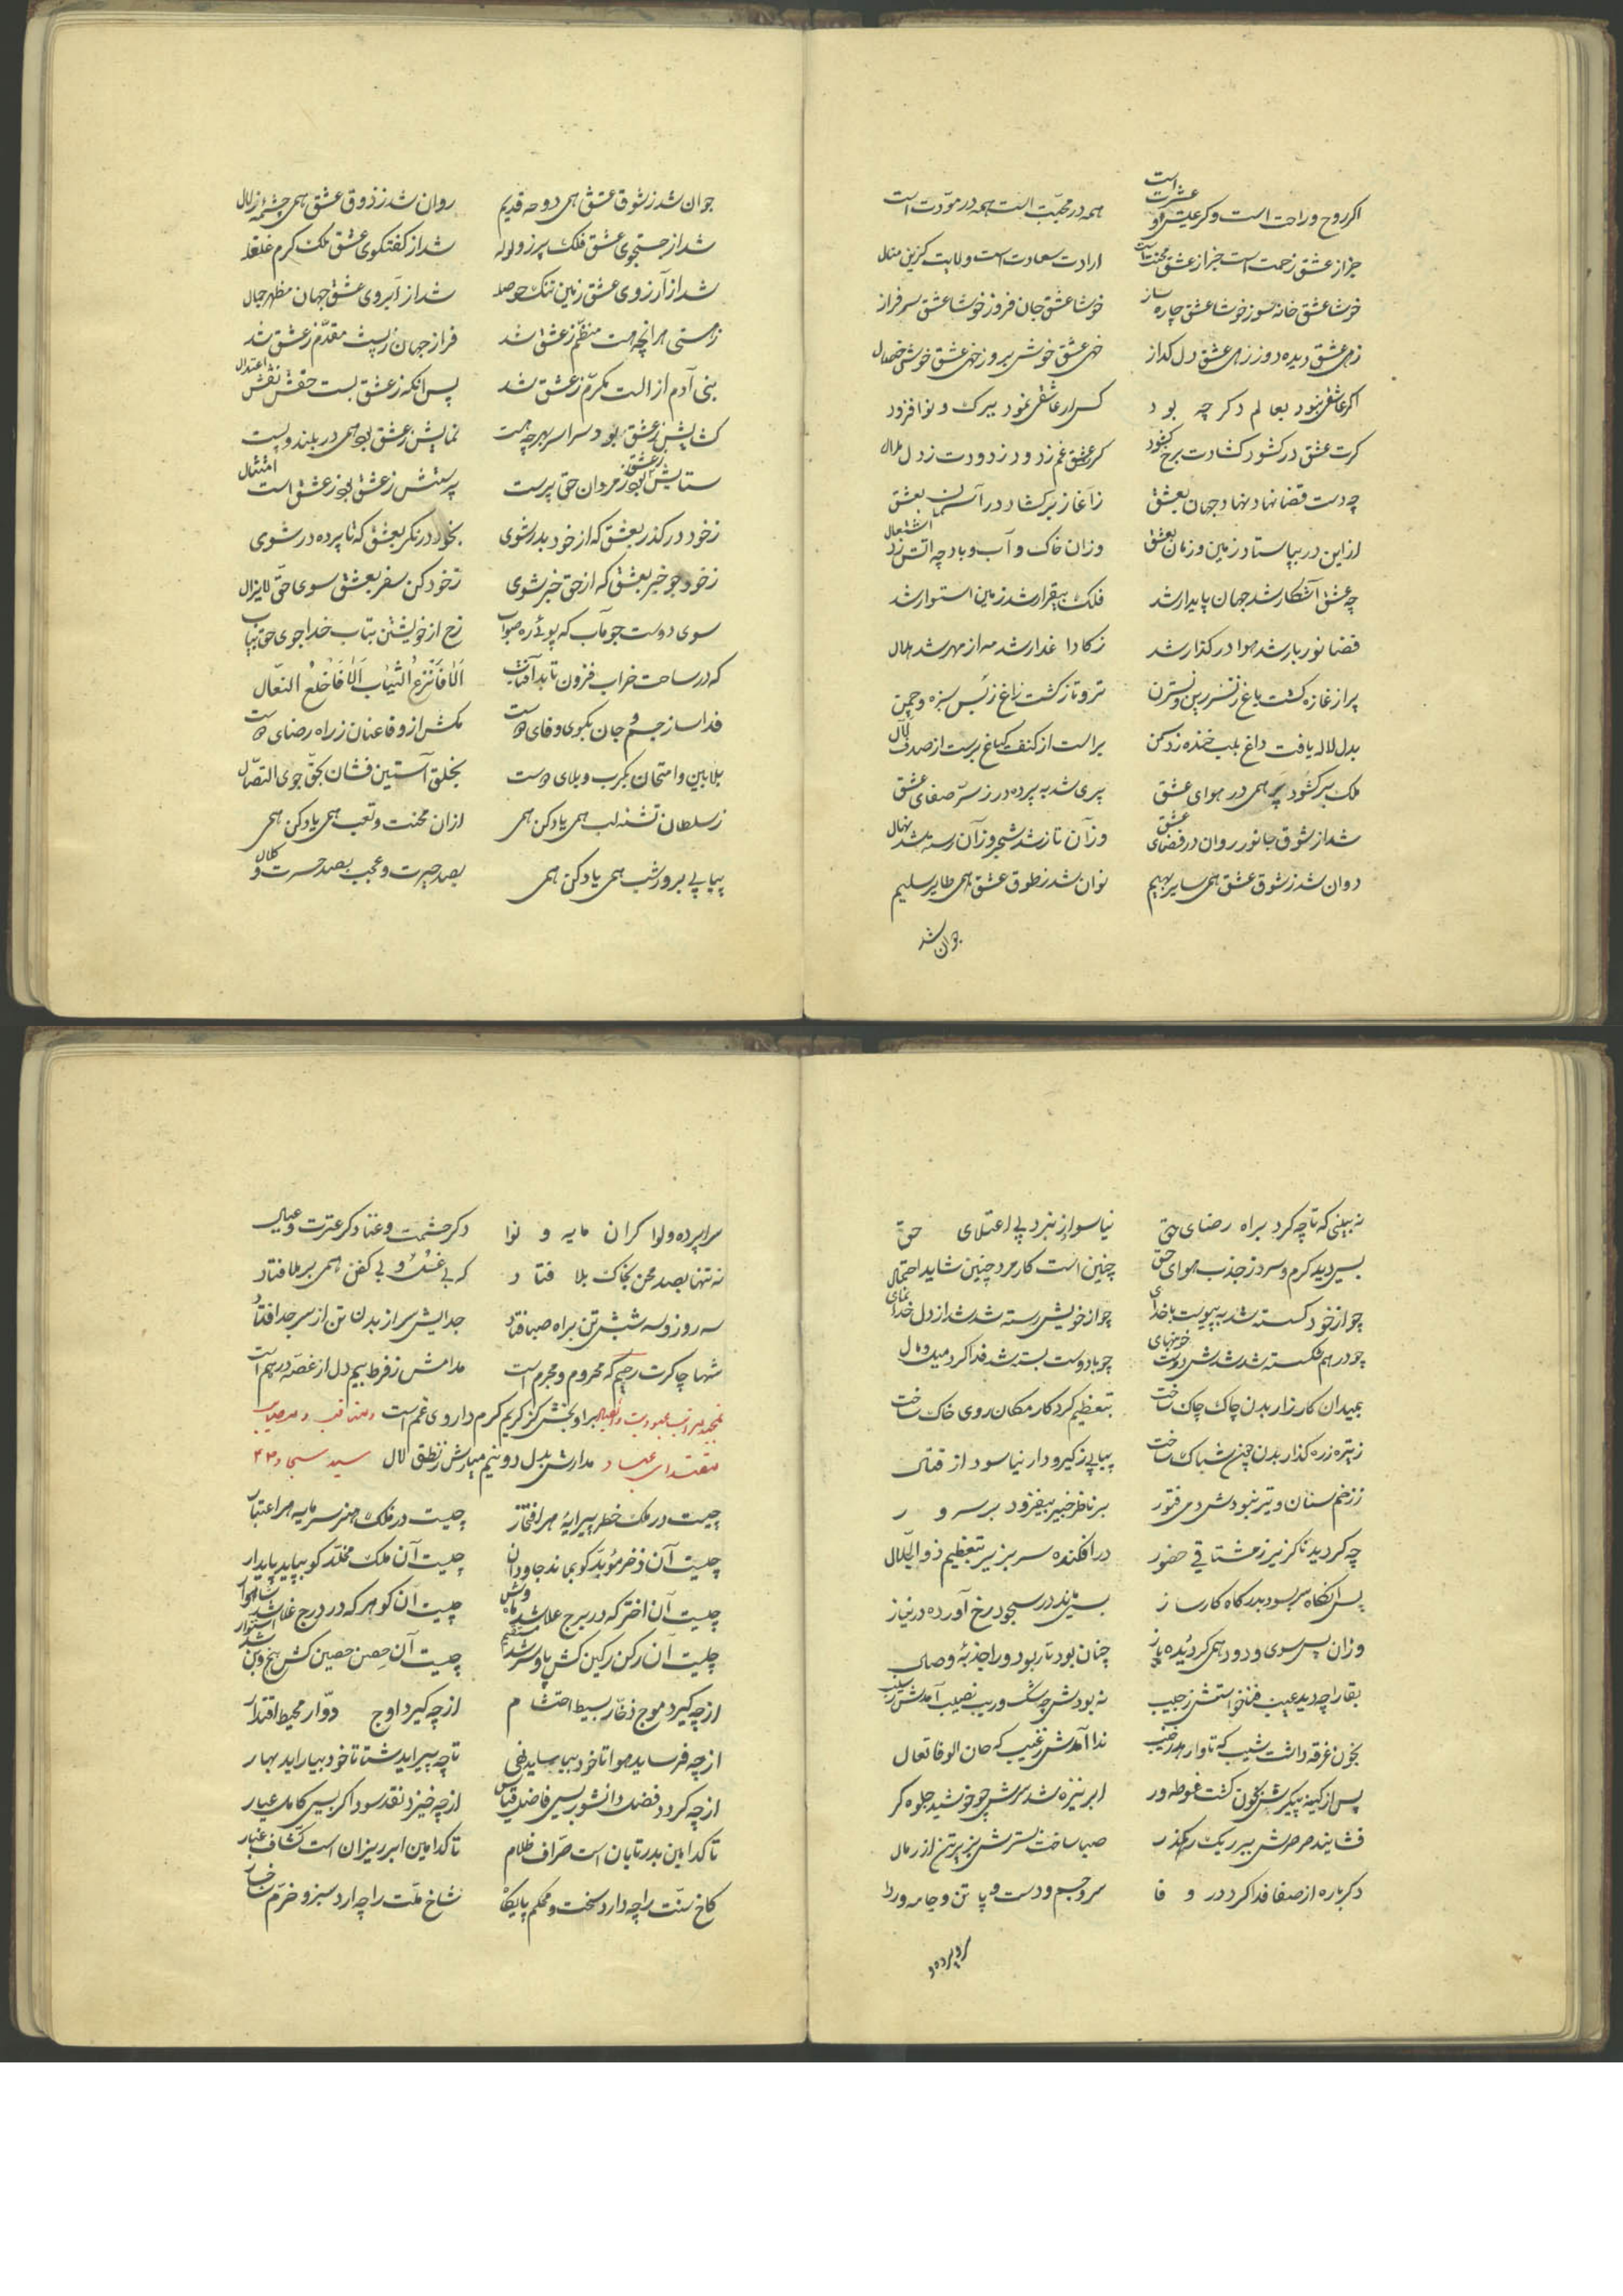 اکر روح و راحت است و کر عیش و عشرت است همه در محبّت است همه در مودّت است
جز از عشق زحمت است جز از عشق محنت است ارادت سعادت است ولایت کزین منال
خوشا عشق خانه سوز خوشا عشق چاره ساز خوشا عشق جان فروز خوشا عشق سرفراز
زهی عشق دیده دوز زهی عشق دل کداز خهی عشق خوش بروز خهی عشق خوش خصال
اکر عاشقی نبود بعالم دکر چه بود کس ار عاشقی نمود ببرک و نوا فزود
کرت عشق در کشود کشادت برخ کر عشق غم زدود زدودت ز دل ملال
چه دست قضا نهاد نهاد جهان بعشق ز آغاز برکشاد در آسمان بعشق
از این در بپا ستاد زمین و زمان بعشق وزان خاک و آب و باد چه اتش زد اشتعال
چه عشق آشکار شد جهان پایدار شد فلک بیقرار شد زمین استوار شد
قضا نوربار شد هوا در کذار شد زکادا غدار شد مه از مهر شد هلال
پر از غازه کشت باغ ز نسرین و نسترن تر و تازه کشت راغ ز بس سبزه و چمن
بدل لاله یافت داغ بلب خنده زد سمن براست از کنف کیاغ برست از صدف لآل
ملک برکشود پر همی در هوای عشق پری شد به پرده در ز سرّ صفای عشق
شد از شوق جانور روان در فضای عشق وز آن تازه شد شجر وز آن رسته شد نهال
دوان شد ز شوق عشق همی سایر بهیم نوان شد ز طوق عشق همی طایر سلیم
جوان شد
جوان شد ز شوق عشق همی دوحه قدیم روان شد ز ذوق عشق همی چشمه زلال
شد از جستجوی عشق فلک پر ز ولوله شد از کفتکوی عشق ملک کرم غلغله
شد از آرزوی عشق زمین تنک حوصله شد از آبروی عشق جهان مظهر جمال
ز هستی هر انچه هست منظّم ز عشق شد فراز جهان ز پست مقدّم ز عشق شد
بنی آدم از الست مکرّم ز عشق شد پس انکه ز عشق بست حقش نقش اعتدال
کشایش ز عشق بود سراسر بهر چه هست نمایش ز عشق بود همی در بلند و پست
ستایش بود ز عشق ز مردان حق پرست پرستش ز عشق بود ز عشق است امتثال
ز خود در کذر بعشق که از خود بدر شوی بخود در نکر بعشق که تا پرده در شوی
ز خود جو خبر بعشق که از حق خبر شوی ز خود کن سفر بعشق سوی حقّ لایزال
سوی دوست جو مآب که پوئی ره صواب رخ از خویشتن بتاب خدا جوی حق بیاب
که در ساحت خراب فزون تابد آفتاب اَلا فَانزع الثیاب اَلا فَاخلع النعال
فدا ساز جسم و جان بکوی وفای دوست مکش از وفا عنان ز راه رضای دوست
بلا بین و امتحان بکرب و بلای دوست بخلق آستین فشان بحقّ جوی اتّصال
ز سلطان تشنه لب همی یاد کن همی از ان محنت و تعب همی یاد کن همی
پیاپی بروز و شب همی یاد کن همی بصد حیرت و عجب بصد حسرت و کلال
نه بینی که تا چه کرد براه رضای حق نیاسود از نبرد پی اعتلای حق
بسی دیده کرم و سرد ز جذب هوای حق چنین است کار مرد چنین شاید احتمال
چو از خود کسسته شد بپیوست با خدای چو از خویش رسته شد شد از دل خدا نمای
چو در هم شکسته شد شدش دوست خونبهای چو با دوست بسته شد فدا کرد
بمیدان کارزار بدن چاک چاک ساخت بتعظیم کردکار مکان روی خاک ساخت
ز تیر زره کذار بدن چون شباک ساخت پیاپی ز کیر و دار نیاسود از قتال
ز زخم سنان و تیر نبودش دمی فتور بر ناظر خبیر بیفزود بر سرور
چه کردید ناکزیر ز مشتاقی حضور در افکنده سر بزیر بتعظیم ذو الجلال
پس انکاه سر بسود بدرکاه کارساز بسی ماند در سجود رخ آورده در نیاز
وزان پس سوی ودود همی کرد دیده باز چنان بود تا ربود ورا جذبهٔ وصال
بقا را چه دید عیب فنا خواستش ز جیب نه بودش چه شک و ریب نصیب آمدش
بخون غرقه داشت شیب که تا وارهد ز خیب ندا آمدش ز غیب که حان الوفا تعال
پس از کینه پیکرش بخون کشت غوطه ور ابر نیزه شد سرش چو خورشید جلوه کر
فشاینده صرصرش بسر ریک رهکذر صبا ساخت بسترش بزیر تن از رمال
دکرباره از صفا فدا کرد در وفا سر و جسم و دست و پا تن و جامه و ردا
سراپرده و
سراپرده و لوا کران مایه و نوا دکر حشمت و عتاد کر عترت و عیال
نه تنها بصد محن بخاک بلا فتاد که بی غسل و بی کفن همی بر ملا فتاد
سه روز و سه شب تن براه صبا فتاد جدایش سر از بدن تن از سر جدا فتاد
شها چاکرت رحیم که محروم و مجرم است مدامش ز فرط بیم دل از غصّه درهم است
بر او بخش کز کریم کرم داروی غم است
مقتدای عباد مدارش بدل دو نیم میارش ز نطق لال سید سجاد
چیست در ملک خطر پیرایهٔ هر افتخار چیست در فلک هنر سرمایه هر اعتبار
چیست آن ذخر مؤبّد کو بماند جاودان چیست آن ملک مخلّد کو بپاید پایدار
چیست آن اختر که در برج علا شد ماه وش چیست آن کوهر که در درج غلا شد شاهوار
چیست آن رکن رکین کش پا و سر شد مستقیم چیست آن حصن حصین کش بیخ و بن شد استوار
از چه کیرد موج ذخّار بسیط احتشام از چه کیرد اوج دوّار محیط اقتدار
از چه فرساید هوا تا خود بیاساید تا چه پیراید شتا تا خود بیاراید بهار
از چه کردد فضل دانشور بسی فاضل قیاس از چه خیزد نقد سوداکر بسی کامل عیار
تا کدامین بدر تابان است صرّاف ظلام تا کدامین ابر ریزان است کشّاف غبار
کاخ سنّت را چه دارد سخت و محکم پایکاه شاخ ملّت را چه ارد سبز و خرّم شاخسار